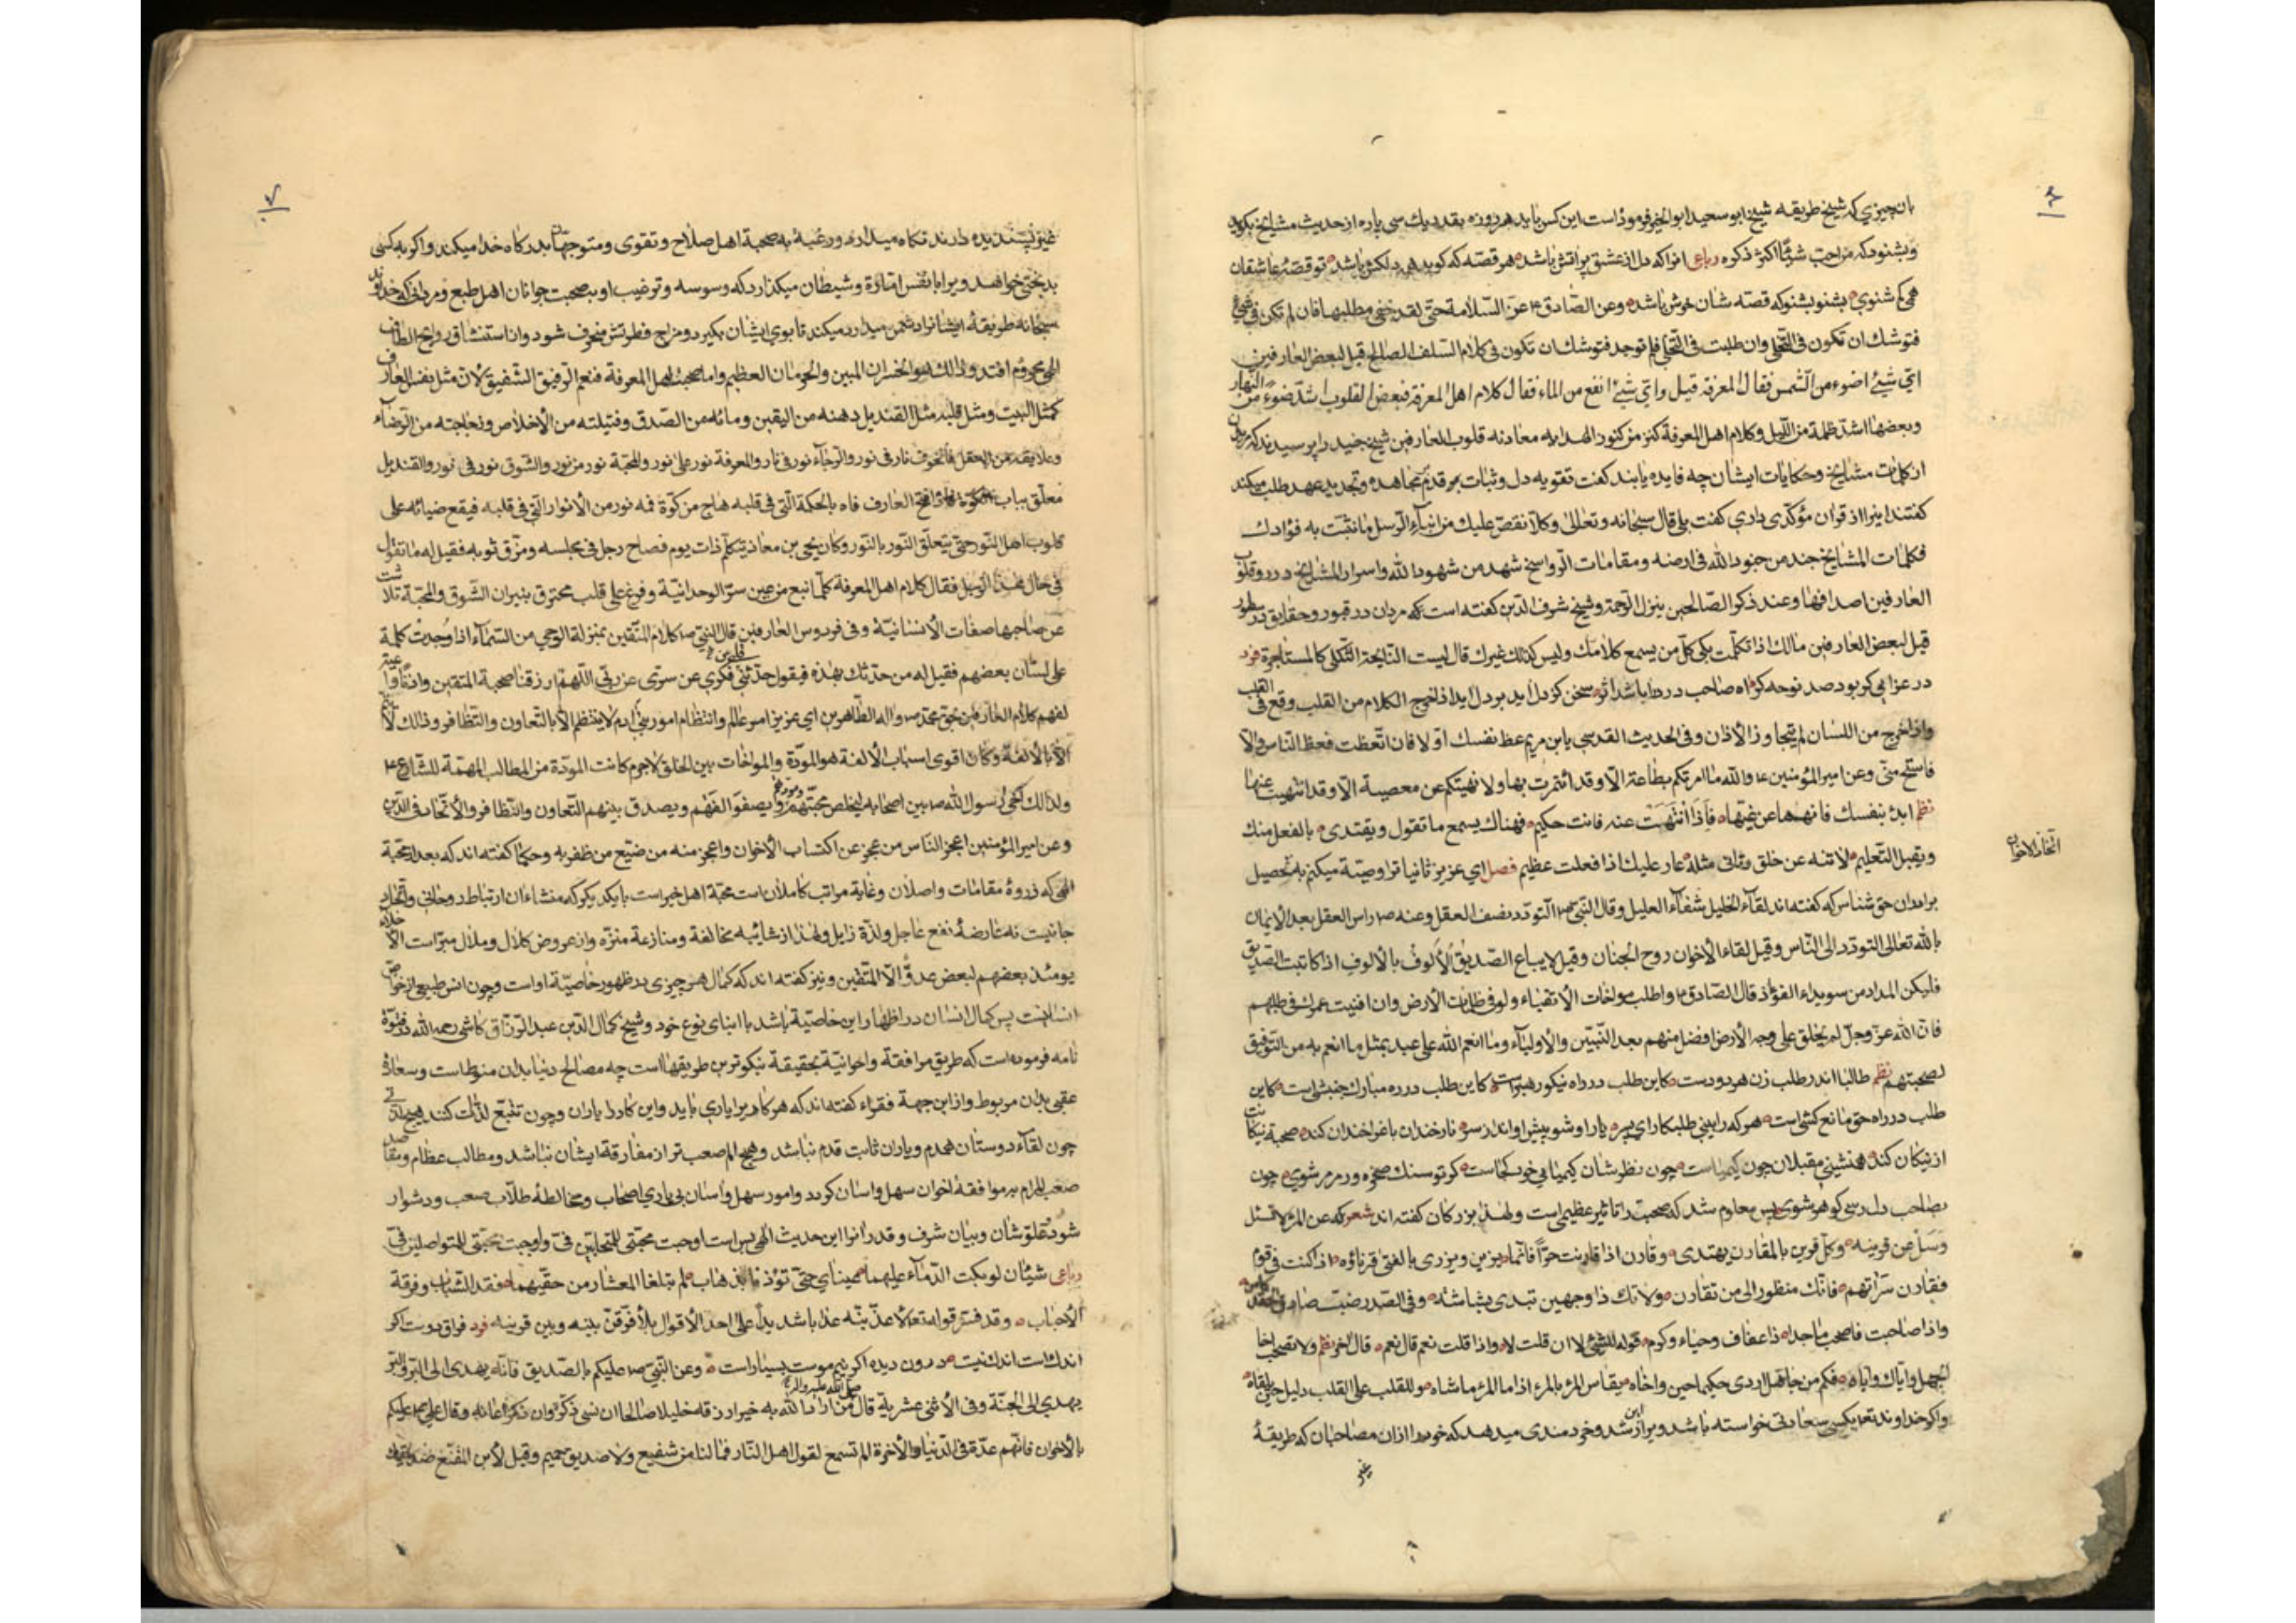 ۶
بان چیزی که شیخ طریقه شیخ ابو سعید ابو الخیر فرموده است این کس باید هر روزه بقدر یک سی پاره از حدیث مشایخ بکوید
وبشنود که من احبّ شیئًا اکثر ذکره رباعی انرا که دل از عشق پر اتش باشد هر قصه که کوید همه دلکش باشد تو قصّهٔ عاشقان
همی کم شنوی بشنو بشنو که قصه شان خوش باشد وعن الصّادق ع عزّ السّلامة حتی لقد خفی مطلبها فان لم تکن فی شیئ
فتوشک ان تکون فی التخلی وان طلبت فی التخلی فلم توجد فتوشک ان تکون فی کلام السلف الصالح قیل لبعض العارفین
ای شیئ اضوء من الشمس فقال المعرفة قیل وای شیئ انفع من الماء فقال کلام اهل المعرفة فبعض القلوب اشدّ ضوءً من النهار
وبعضها اشدّ ظلمة من اللیل وکلام اهل المعرفة کنز من کنوز الهدایه معادنه قلوب العارفین شیخ جنید را پرسیدند که مریدان
از کلمات مشایخ وحکایات ایشان چه فایده یابند کفت تقویه دل وثبات بر قدم مجاهده وتجدید عهد طلب میکند
کفتند اینرا از قران مؤکّدی داری کفت بلی قال سبحانه وتعالی وکلّا نقصّ علیک من انباء الرسل ما نثبّت به فؤادک
فکلمات المشایخ جند من جنود الله فی ارضه ومقامات الرواسخ شهد من شهود الله واسرار المشایخ درر وقلوب
العارفین اصدافها وعند ذکر الصّالحین ینزل الرحمة وشیخ شرف الدین کفته است که مردان در قبور وحقایق در سطور
قیل لبعض العارفین مالک اذا تکلّمت بکی کلّ من یسمع کلامک ولیس کذلک غیرک قال لیست النایحة الثکلی کالمستاجرة فرد
در عزایی کر بود صد نوحه کر اه صاحب درد را باشد اثر سخن کز دل اید بر دل اید اذا خرج الکلام من القلب وقع فی القلب
واذا خرج من اللسان لم یتجاوز الاذان وفی الحدیث القدسی یابن مریم عظ نفسک اوّلا فان اتّعظت فعظ الناس والّا
فاستح منّی وعن امیر المؤمنین ع والله ما امرتکم بطاعة الّا وقد ائتمرت بها ولا نهیتکم عن معصیة الّا وقد انتهیت عنها
نظم ابدء بنفسک فانهها عن غیّها فاذا انتهت عنه فانت حکیم فهناک یسمع ما تقول ویقتدی بالفعل منک
ویقبل التعلیم لا تنه عن خلق وتاتی مثله عار علیک اذا فعلت عظیم فصل ای عزیز ثانیا ترا وصیّة میکنم به تحصیل
اتخاذ الاخوان
برادران حق شناس که کفته اند لقاء الخلیل شفاء العلیل وقال النّبی ص التودّد نصف العقل وعنه ص راس العقل بعد الایمان
بالله تعالی التودّد الی النّاس وقیل لقاء الاخوان روح الجنان وقیل لا یباع الصّدیق الألوف بالألوف اذا کاتبت الصّدیق
فلیکن المداد من سویداء الفؤاد قال الصّادق ع واطلب مواخات الاتقیاء ولو فی ظلمات الارض وان افنیت عمرک فی طلبهم
فانّ الله عزّ وجلّ لم یخلق علی وجه الارض افضل منهم بعد النّبیین والاولیاء وما انعم الله علی عبد بمثل ما انعم به من التوفیق
لصحبتهم نظم طالبا اندر طلب زن هر دو دست کاین طلب در راه نیکو رهبر است کاین طلب در ره مبارک جنبشی است کاین
طلب در راه حق مانع کشی است هر که را بینی طلبکار ای پسر یار او شو پیش او انداز سر نار خندان باغ را خندان کند صحبة نیکانت
از نیکان کند همنشینی مقبلان چون کیمیاست چون نظرشان کیمیایی خود کجاست کر تو سنک صخره ور مرمر شوی چون
بصاحب دل رسی کوهر شوی پس معلوم شد که صحبت را تاثیر عظیمی است ولهذا بزرکان کفته اند شعر که عن المرء لا تسئل
وسل عن قرینه وکل قرین بالمقارن یهتدی وقارن اذا قارنت حرّاً فانّما یزین ویزری بالفتی قرناؤه اذا کنت فی قوم
فقارن سراتهم فانّک منظور الی من تقارن ولا تک ذا وجهین تبدی بشاشة وفی الصّدر ضبّ
واذا صاحبت فاصحب ماجدا ذا عفاف وحیاء وکرم قوله للشیئ لا ان قلت لا واذا قلت نعم قال نعم قال اخر نظم ولا تصحب اخا
الجهل وایاک وایاه فکم من جاهل اردی حکیما حین واخاه یقاس المرء بالمرء اذا ما المرء ماشاه وللقلب علی القلب دلیل حین یلقاه
واکر خداوند تع بکسی سعادتی خواسته باشد ویرا از این رشد وخردمندی میدهد که خود را از ان مصاحبان که طریقهٔ
غیر
۷
غیر پسندیده دارند نکاه میدارد ورغبة به صحبة اهل صلاح وتقوی ومتوجهان بدرکاه خدا میکند واکر به کسی
بدبختی خواهد ویرا با نفس امّارة وشیطان میکذارد که وسوسه وترغیب او بصحبت جوانان اهل طبع ومردانی که خداوند
سبحانه طریقهٔ ایشانرا دشمن میدارد میکند تا بوی ایشان بکیرد ومزاج فطرتش منحرف شود واز استنشاق روایح الطاف
الهی محروم افتد وذلک هو الخسران المبین والحرمان العظیم واما صحبت اهل المعرفة فنعم الرفیق الشّفیق لانّ مثل نفس العارف
کمثل البیت ومثل قلبه مثل القندیل دهنه من الیقین ومائه من الصّدق وفتیلته من الاخلاص وزجاجته من الرّضاء
وعلایقه من العقل فالخوف نار فی نور والرجاء نور فی نار والمعرفة نور علی نور والمحبّة نور من نور والشّوق نور فی نور والقندیل
معلّق بباب الکوّة فاذا فتح العارف فاه بالحکمة الّتی فی قلبه هاج من کوّة فمه نور من الانوار الّتی فی قلبه فیقع ضیائه علی
قلوب اهل النّور حتی یتعلّق النّور بالنّور وکان یحیی بن معاذ یتکلّم ذات یوم فصاح رجل فی مجلسه ومزّق ثوبه فقیل له ما تقول
فی حال هذا الرجل فقال کلام اهل المعرفة کلّما نبع من عین سرّ الوحدانیّة وفرغ علی قلب محترق بنیران الشّوق والمحبّة تلاشت
عن صاحبها صفات الانسانیّة وفی فردوس العارفین قال النّبی ص کلام المتّقین بمنزلة الوحی من السّماء اذا وُجدتْ کلمة
علی لسان بعضهم فقیل له من حدّثک بهذه فیقول حدّثنی فکری عن سرّی عن ربّی اللّهمّ ارزقنا صحبة المتقین
لفهم کلام العارفین بحق محمّد ص واله الطّاهرین ای عزیز امر عالم وانتظام امور بنی ادم لا ینتظم الّا بالتعاون والتّظافر وذلک لا یتمّ
الّا بالالفة وکان اقوی اسباب الالفة هو المودّة والمواخات بین الخلق لاجرم کانت المودّة من المطالب المهمّة للشّارع ع
ولذلک اخی رسول الله ص بین اصحابه لیخلص محبّتهم ومودّتهم ویصفو الفهم ویصدق بینهم التّعاون والتّظافر والاتّحاد فی الدّین
وعن امیر المؤمنین اعجز النّاس من عجز عن اکتساب الاخوان واعجز منه من ضیّع من ظفر به وحکما کفته اند که بعد از محبّة
الهی که ذروهٔ مقامات واصلان وغایة مراتب کاملان است محبّة اهل خیر است با یکدیکر که منشاء ان ارتباط روحانی واتّحاد
جانیست نه عارضهٔ نفع عاجل ولذّة زایل ولهذا از شائبه مخالفة ومنازعة منزّه واز عروض کلال وملال مبرّاست الاخلاء
یومئذ بعضهم لبعض عدوّ الّا المتّقین ونیز کفته اند که کمال هر چیزی در ظهور خاصیّة او است وچون انس طبیعی از خواص
انسانست پس کمال انسان در اظهار این خاصیّة باشد با ابنای نوع خود وشیخ کمال الدّین عبد الرّزّاق کاشی رحمه الله در فتوّة
نامه فرموده است که طریق مرافقة واخوانیّة بحقیقة نیکوترین طریقهاست چه مصالح دنیا بدان منوط است وسعادة
عقبی بدان مربوط واز این جهة فقراء کفته اند که هر کار برا یاری باید واین کار را یاران وچون تتبّع لذّات کنند هیچ لذّتی
چون لقاء دوستان همدم ویاران ثابت قدم نباشد وهیچ الم صعب تر از مفارقة ایشان نباشد ومطالب عظام ومقاصد
صعب المرام بر موافقة اخوان سهل واسان کردد وامور سهل واسان بی یاری اصحاب ومخالطهٔ طلّاب صعب ودشوار
شود علوّ شان وبیان شرف وقدر انرا این حدیث الهی بس است اوجبت محبّتی للمتحابّین فیّ واوجبت محبّتی للمتواصلین فیّ
رباعی شیئان لو بکت الدّماء علیهما عینای حتّی تؤذنا بذهاب لم تبلغا المعشار من حقّیهما فقد الشّباب وفرقة
الاحباب وقد فسّر قوله تع لاعذّبنّه عذابا شدیداً علی احد الاقوال بلأفرّقنّ بینه وبین قرینه فرد فراق دوست اکر
اندک است اندک نیست درون دیده اکر نیم موست بسیار است وعن النّبی ص علیکم بالصّدیق فانّه یهدی الی البرّ والبرّ
یهدی الی الجنّة وفی الاثنی عشریة قال صلی الله علیه واله من اراد الله به خیرا رزقه خلیلا صالحا ان نسی ذکّره وان ذکر اعانه وقال علی ع علیکم
بالاخوان فانّهم عدّة فی الدّنیا والاخرة الم تسمع لقول اهل النّار فما لنا من شفیع ولا صدیق حمیم وقیل لابن المقنّع صدیقک